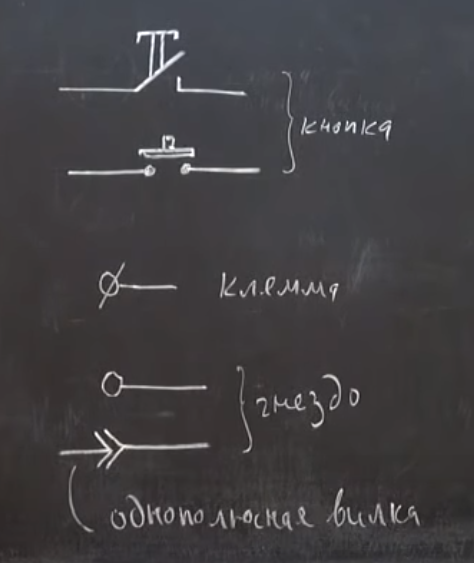 кнопка
клемма
гнездо
однополюсная вилка